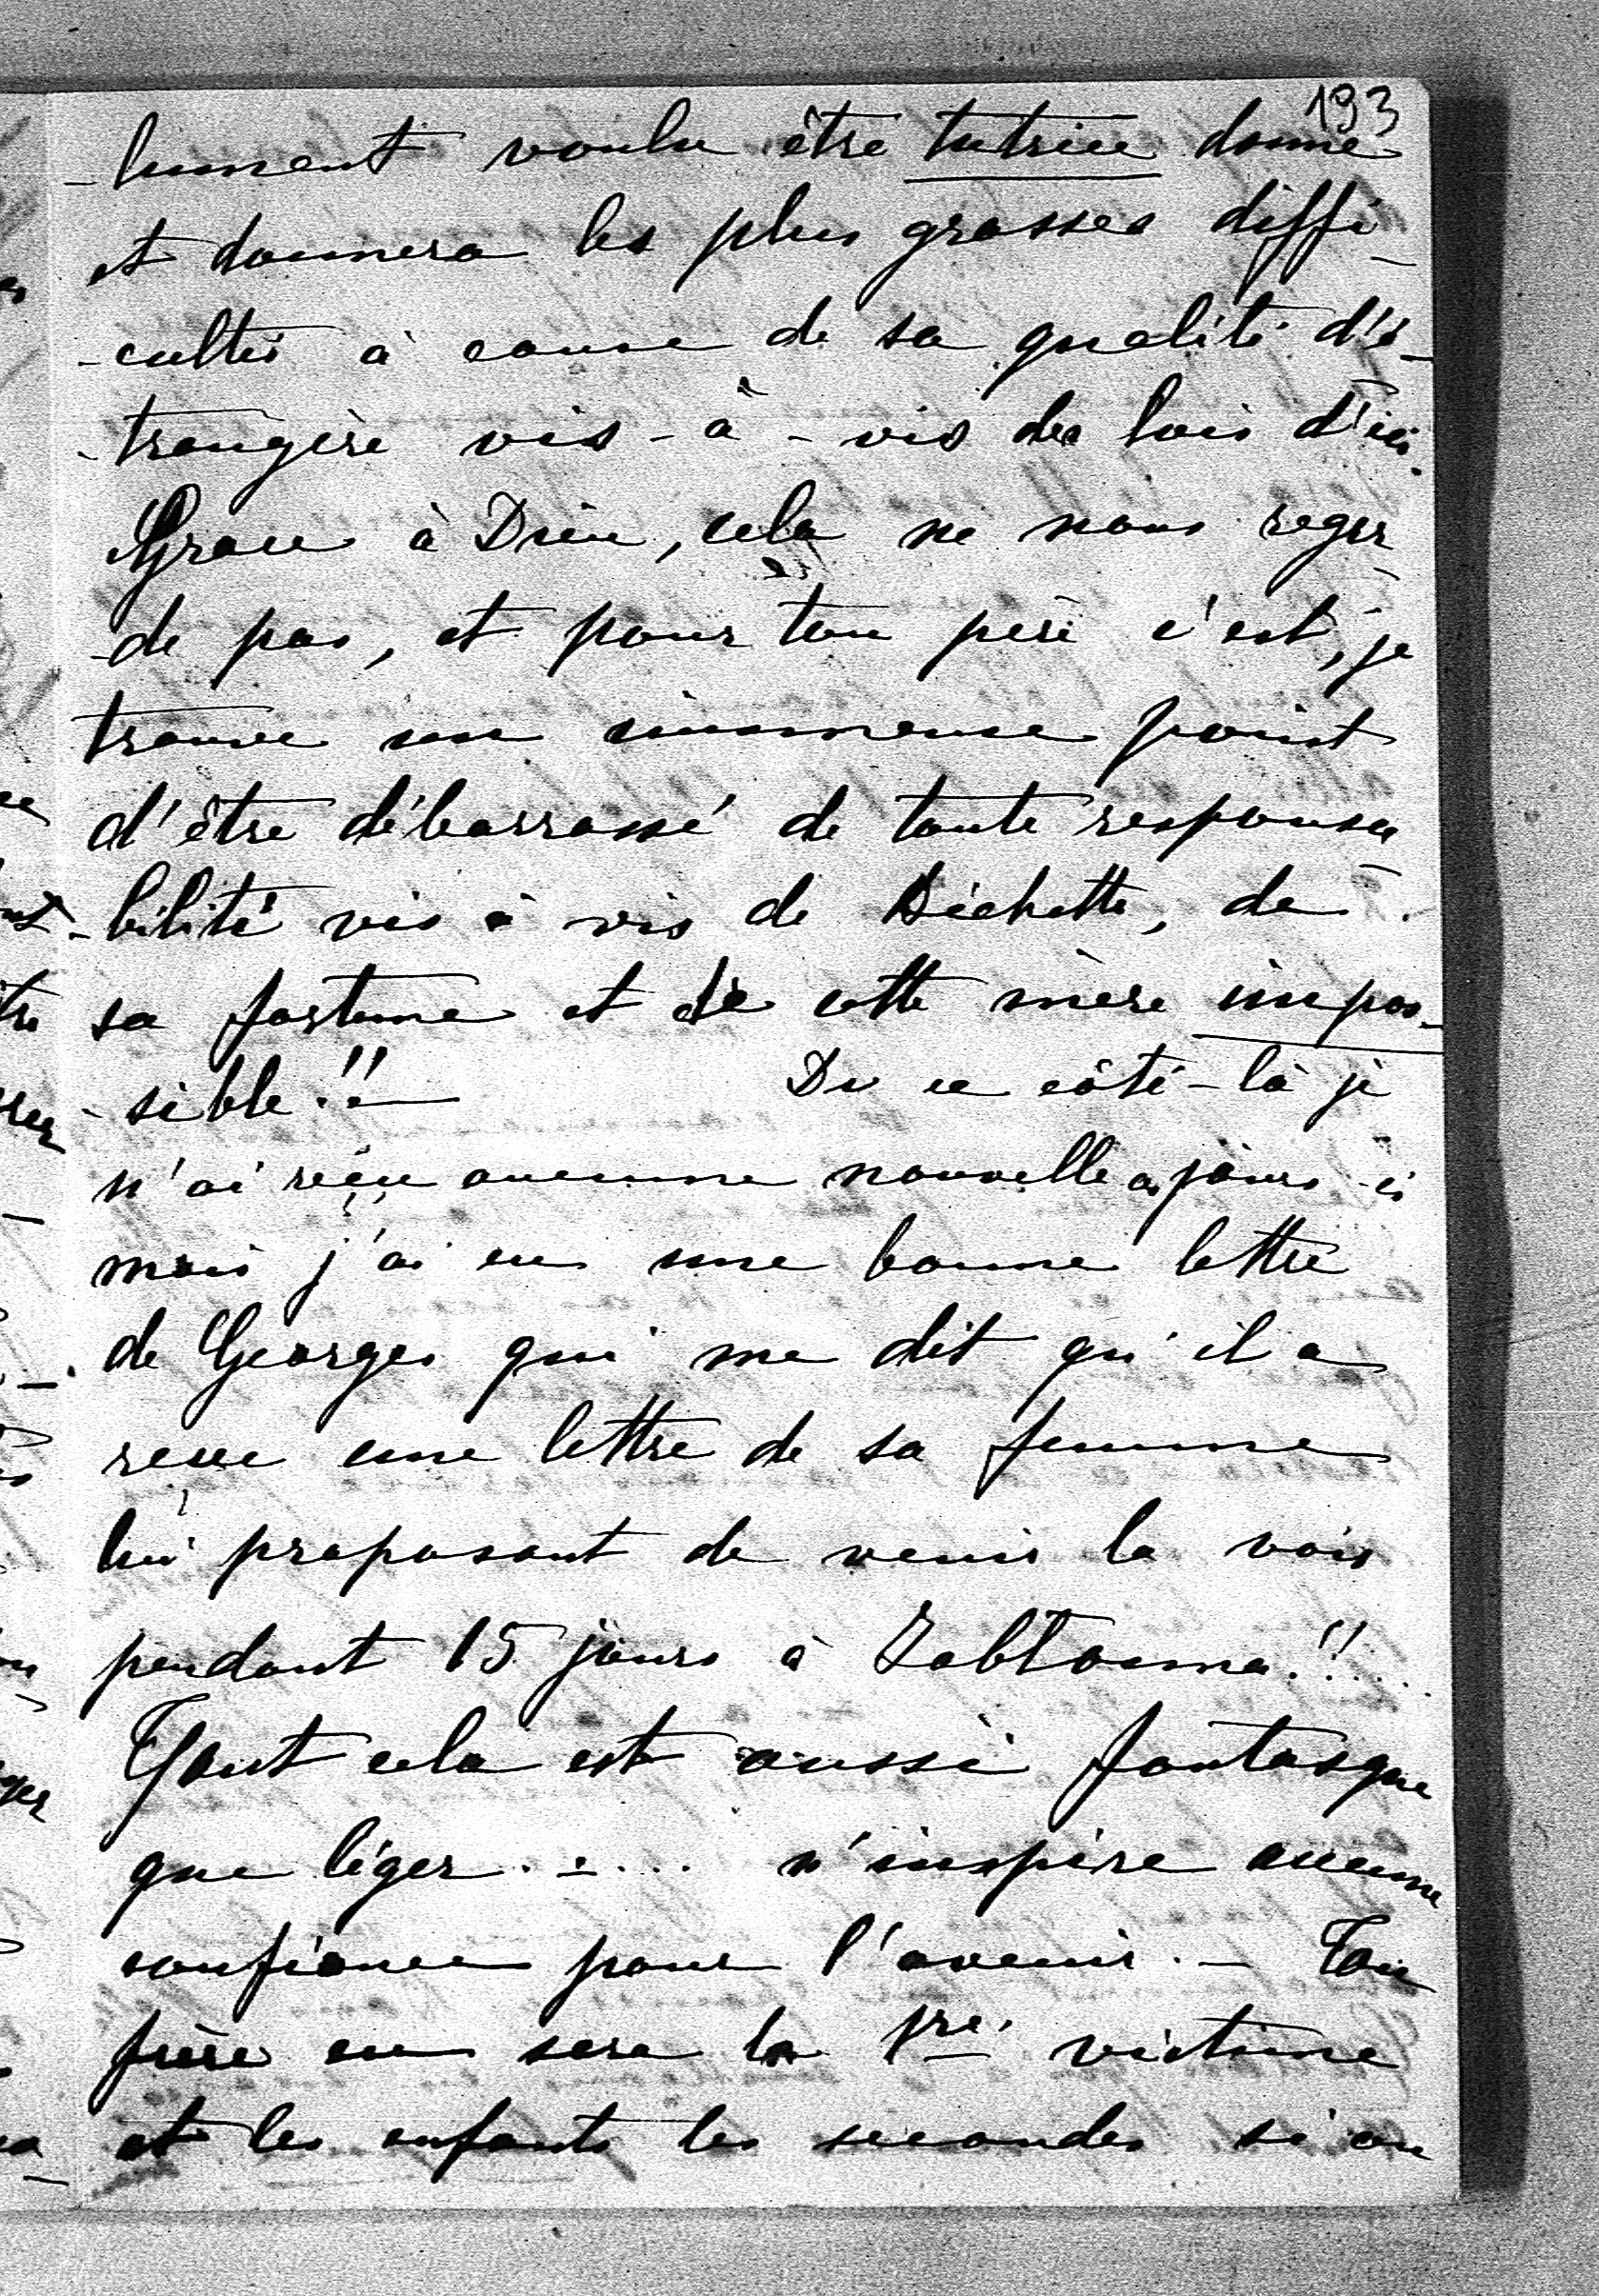 193
-lument voulu être tutrice donne
et donnera les plus grosses diffi-
-cultés à cause de sa qualité d'é-
-trangère vis-à-vis des lois d'ici.
Grâce à Dieu, cela ne nous regar
-de pas, et pour ton père c'est, je
trouve un immense point
d'être débarrassé de toute responsa
-bilité vis à vis de Bichette, de
sa fortune et de cette mère impos-
-sible!! De ce côté-là je
n'ai reçu aucune nouvelle ces jours-ci
mais j'ai eu une bonne lettre
de Georges qui me dit qu'il a
reçu une lettre de sa femme
lui proposant de venir la voir
pendant 15 jours à Jabłonna!!...
Tout cela est aussi fantasque
que léger..... n'inspire aucune
confiance pour l'avenir.- Ton
frère en sera la 1re victime
et les enfants les secondes si on